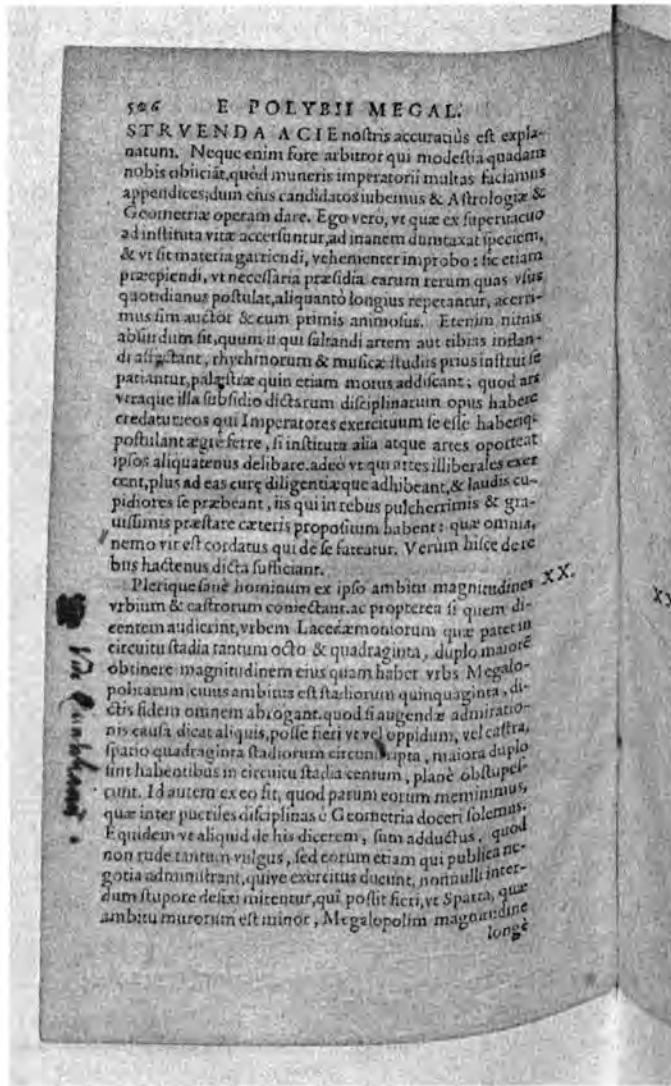 506 E POLYBII MEGAL.
STRVENDA ACIE nostris accuratiùs est expla-
natum. Neque enim fore arbitror qui modestia quadam
nobis obiiciāt, quòd muneris imperatorii multas faciamus
appendices; dum eius candidatos iubemus & Astrologiæ &
Geometriæ operam dare. Ego verò, vt quæ ex superuacuo
ad instituta vitæ accersuntur, ad inanem dumtaxat speciem,
& vt sit materia garriendi, vehementer improbo: sic etiam
præcipiendi, vt necessaria præsidia earum rerum quas vsus
quotidianus postulat, aliquantò longius repetantur, acerri-
mus sim auctor & cum primis animosus. Etenim nimis
absurdum sit, quum ii qui saltandi artem aut tibias inflan-
di affectant, rhythmorum & musicæ studiis prius instrui se
patiantur, palæstræ quin etiam motus addiscant; quod ars
vtraque illa subsidio dictarum disciplinarum opus habere
credatur: eos qui Imperatores exercituum se esse haberiq;
postulant ægrè ferre, si instituta alia atque artes oporteat
ipsos aliquatenus delibare. adeò vt qui artes illiberales exer
cent, plus ad eas curę diligentiæque adhibeant, & laudis cu-
pidiores se præbeant, iis qui in rebus pulcherrimis & gra-
uissimis præstare cæteris propositum habent: quæ omnia,
nemo vir est cordatus qui de se fateatur. Verùm hisce de re
bus hactenus dicta sufficiant.
Plerique sanè hominum ex ipso ambitu magnitudines XX.
vrbium & castrorum coniectant. ac propterea si quem di-
centem audierint, vrbem Lacedæmoniorum quæ patet in
circuitu stadia tantum octo & quadraginta, duplo maiorē
obtinere magnitudinem eius quam habet vrbs Megalo-
politarum, cuius ambitus est stadiorum quinquaginta, di-
ctis fidem omnem abrogant. quod si augendæ admiratio-
nis causa dicat aliquis, posse fieri vt vel oppidum, vel castra,
spatio quadraginta stadiorum circunscripta, maiora duplo
sint habentibus in circuitu stadia centum, planè obstupes-
cunt. Id autem ex eo fit, quod parum eorum meminimus,
quæ inter pueriles disciplinas è Geometria doceri solemus.
Equidem vt aliquid de his dicerem, sum adductus, quod
non rude tantum vulgus, sed eorum etiam qui publica ne-
gotia administrant, quive exercitus ducunt, nonnulli inter-
dum stupore defixi mirentur, qui possit fieri, vt Sparta, quæ
ambitu murorum est minor, Megalopolim magnitudine
longè